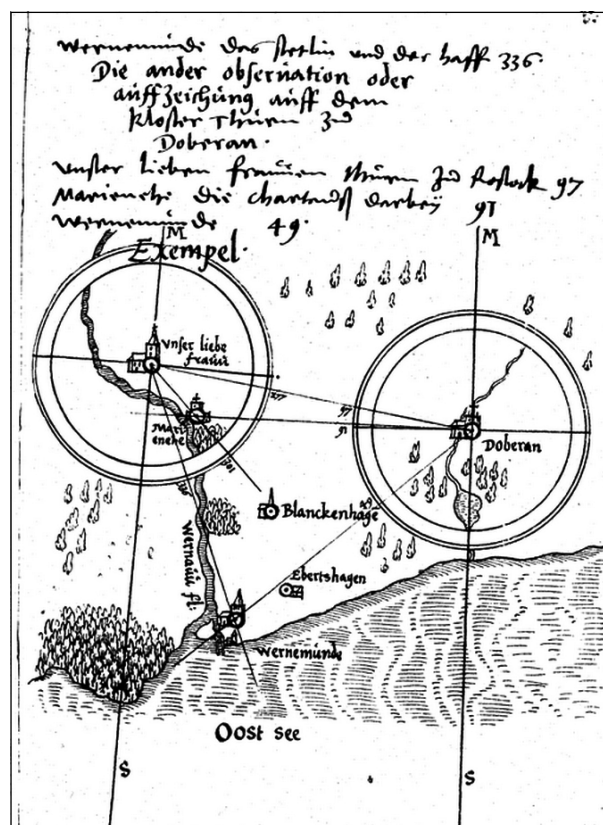 wernemünde das stetlin und der haff 336.
Die ander observation oder
auffzeichung auff dem
kloster Thurm zu
Doberan.
unser lieben frauwen thurm zu Rostock 97
Marienehe die darbey 91
wernemunde 49.
Exempel.
M
M
unser liebe
frauw
Mari
enehe
277
97
91
Doberan
301
336
49
Blanckenhage
wernaw fl:
Ebertshagen
wernemunde
Oost see
S
S